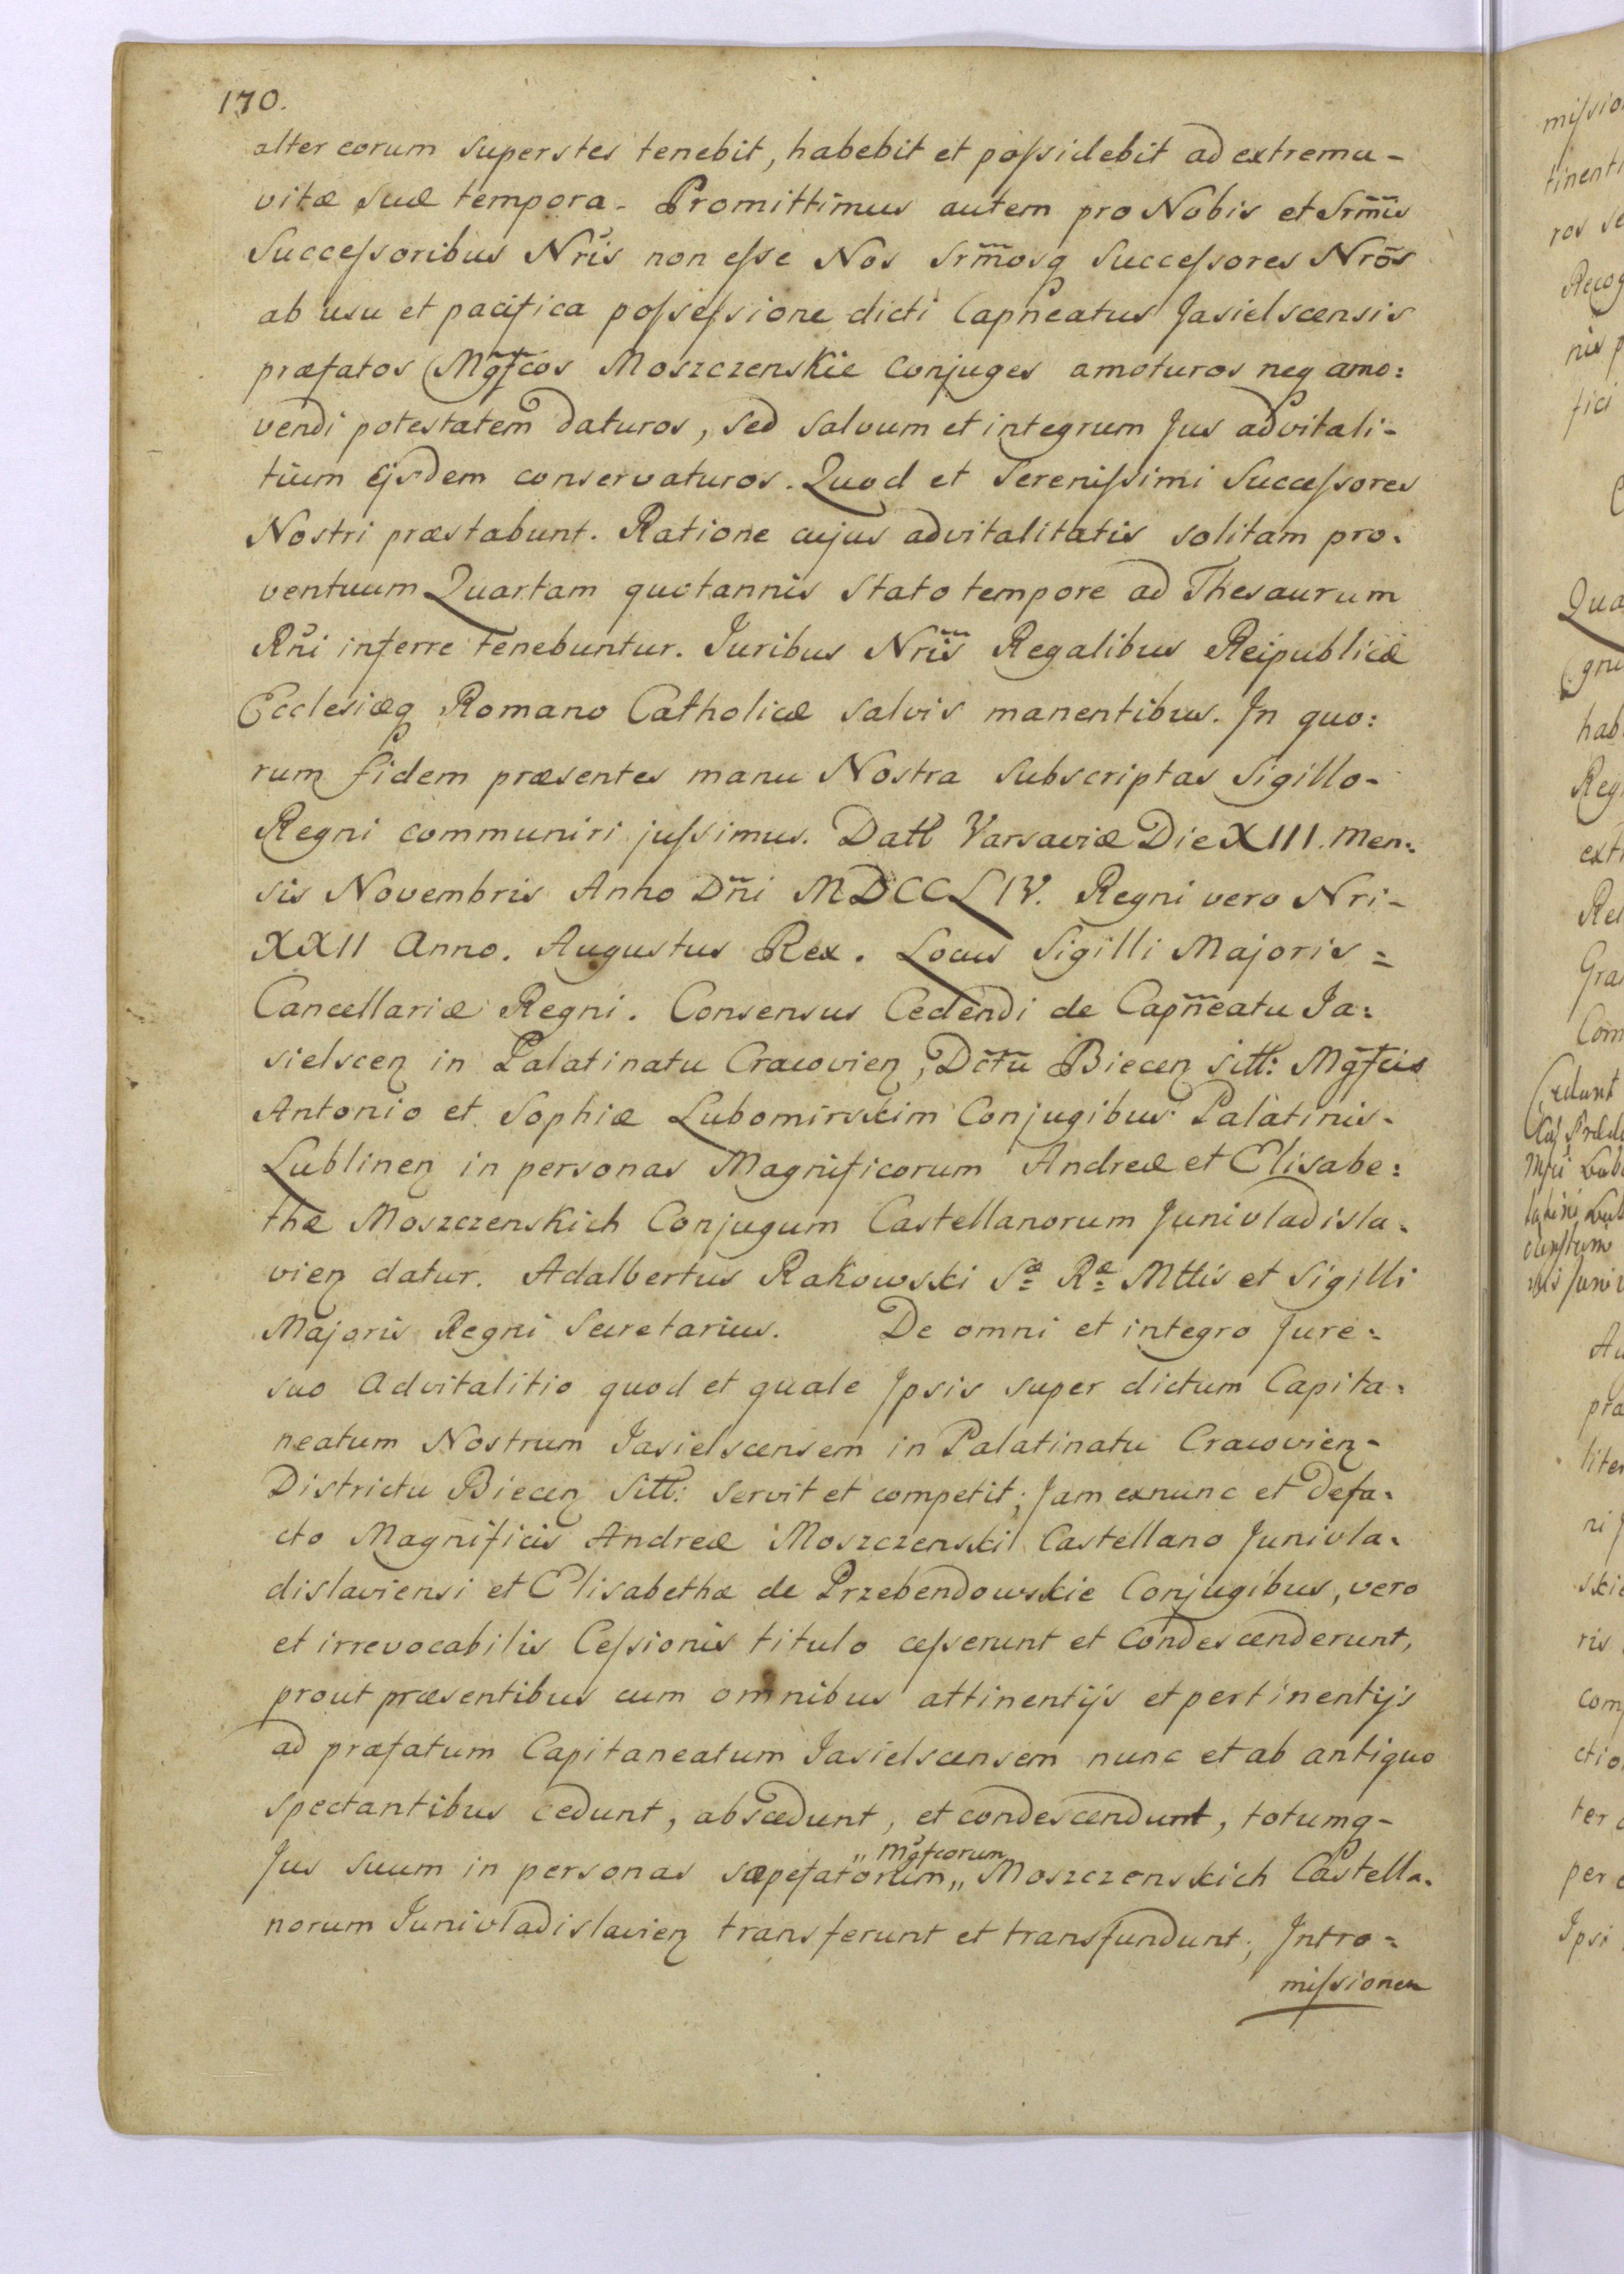 170.
alter eorum superstes tenebit, habebit et poſsidebit ad extrema-
vitæ suæ tempora. Promittimus autem pro Nobis et Srm̃is
Succeſsoribus Nr̃is non eſse Nos Srm̃osq Succeſsores Nrõs
ab usu et pacifica poſseſsione dicti Capñeatus Jasielscensis
præfatos Mg̃fcos Moszczenskie Conjuges amoturos neq amo:
vendi potestatem daturos, sed salvum et integrum Jus advitali-
tium Ejsdem conservaturos. Quod et Sereniſsimi Succeſsores
Nostri præstabunt. Ratione cujus advitalitatis solitam pro-
ventuum Quartam quotannis stato tempore ad Thesaurum
Rñi inferre tenebuntur. Juribus Nrĩs Regalibus Reipublicæ
Ecclesiæq Romano Catholicæ salvis manentibus. In quo:
rum fidem præsentes manu Nostra subscriptas Sigillo-
Regni communiri juſsimus. Datt Varsaviæ Die XIII. Men:
sis Novembris Anno Dñi MDCCLIV. Regni vero Nri-
XXII Anno. Augustus Rex. Locus Sigilli Majoris =
Cancellariæ Regni. Consensus Cedendi de Capñeatu Ja:
sielscen in Palatinatu Cracovien, Dctũ Biecen sitt: Mg̃fcis
Antonio et Sophiæ Lubomirskim Conjugibus Palatinis-
Lublinen in personas Magnificorum Andreæ et Elisabe:
thæ Moszczenskich Conjugum Castellanorum Junivladisla-
vien datur. Adalbertus Rakowski Sæ Ræ Mttis et Sigilli
Majoris Regni Secretarius. De omni et integro Jure-
suo Advitalitio quod et quale Ipsis super dictum Capita-
neatum Nostrum Jasielscensem in Palatinatu Cracovien-
Districtu Biecen Sitt: servit et competit; Jam exnunc et Defa-
cto Magnificis Andreæ Moszczenski Castellano Junivla-
dislaviensi et Elisabethæ de Przebendowskie Conjugibus, vero
et irrevocabilis Ceſsionis titulo ceſserunt et Condescenderunt,
prout præsentibus cum omnibus attinentijs et pertinentijs
ad præfatum Capitaneatum Jasielscensem nunc et ab antiquo
spectantibus cedunt, abscedunt, et condescendunt, totumq-
„ Mg̃fcorum
Jus suum in personas sæpefatorum „ Moszczenskich Castella-
norum Junivladislavien transferunt et transfundunt; Intro-
miſsionem